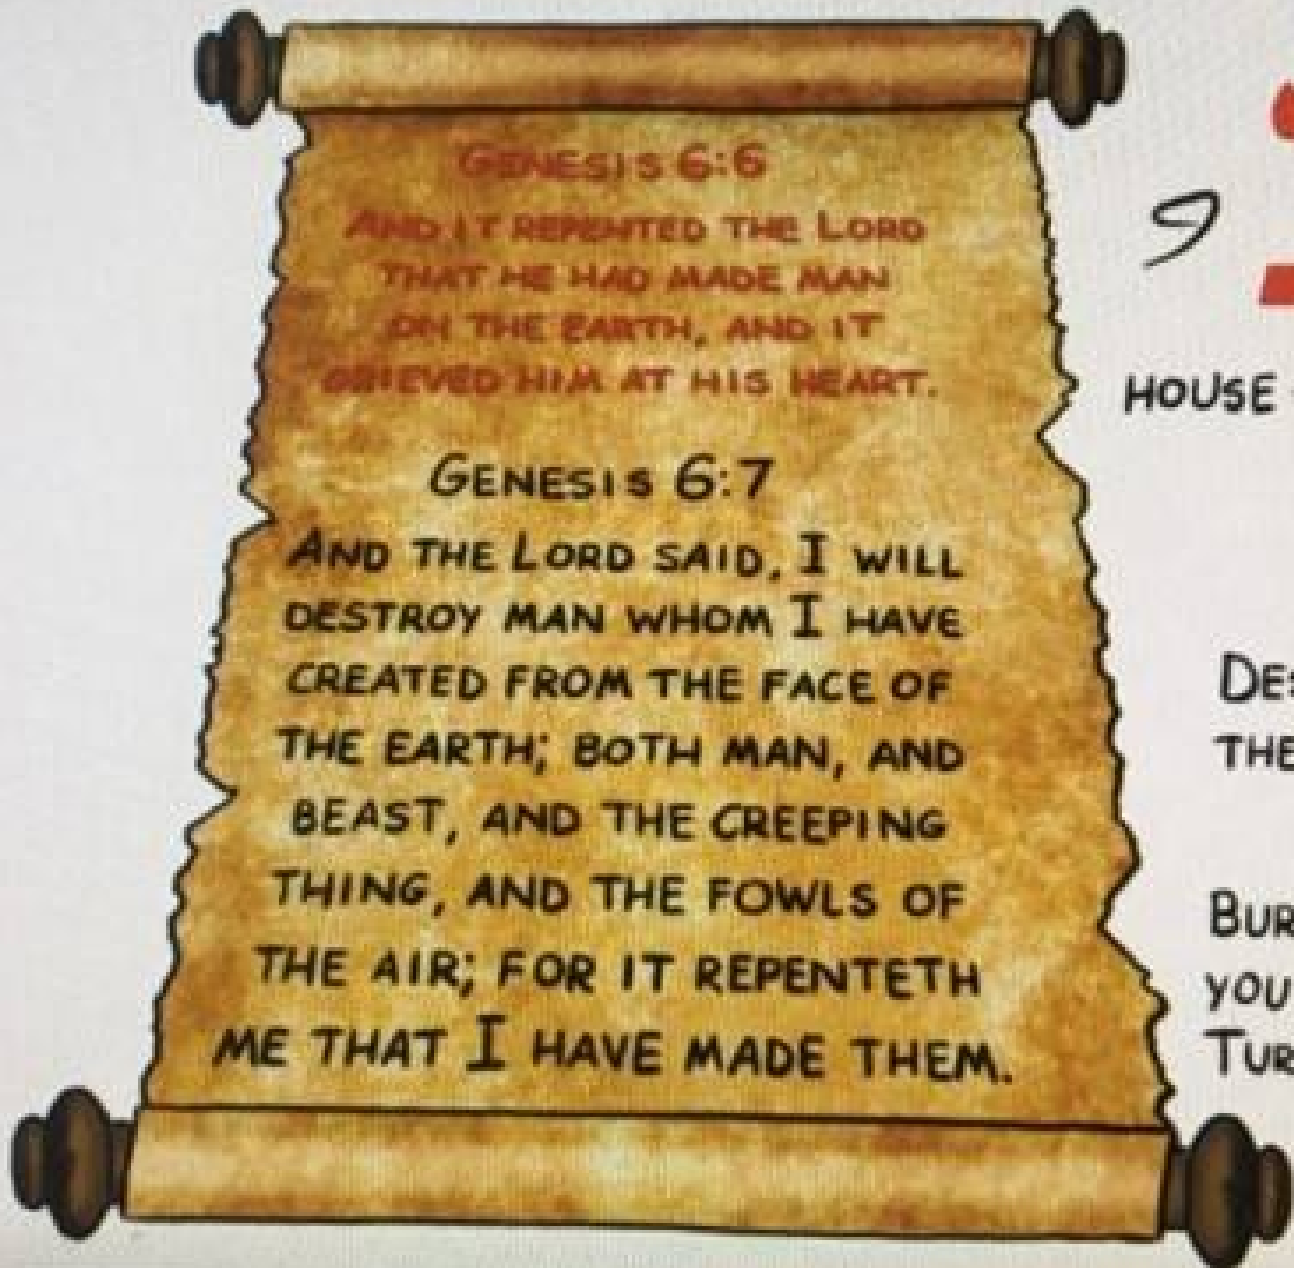 Genesis 6:6
And it repented the Lord
that he had made man
on the earth, and it
grieved him at his heart.
Genesis 6:7
And the Lord said, I will
destroy man whom I have
created from the face of
the earth; both man, and
beast, and the creeping
thing, and the fowls of
the air; for it repenteth
me that I have made them.
House
the
you